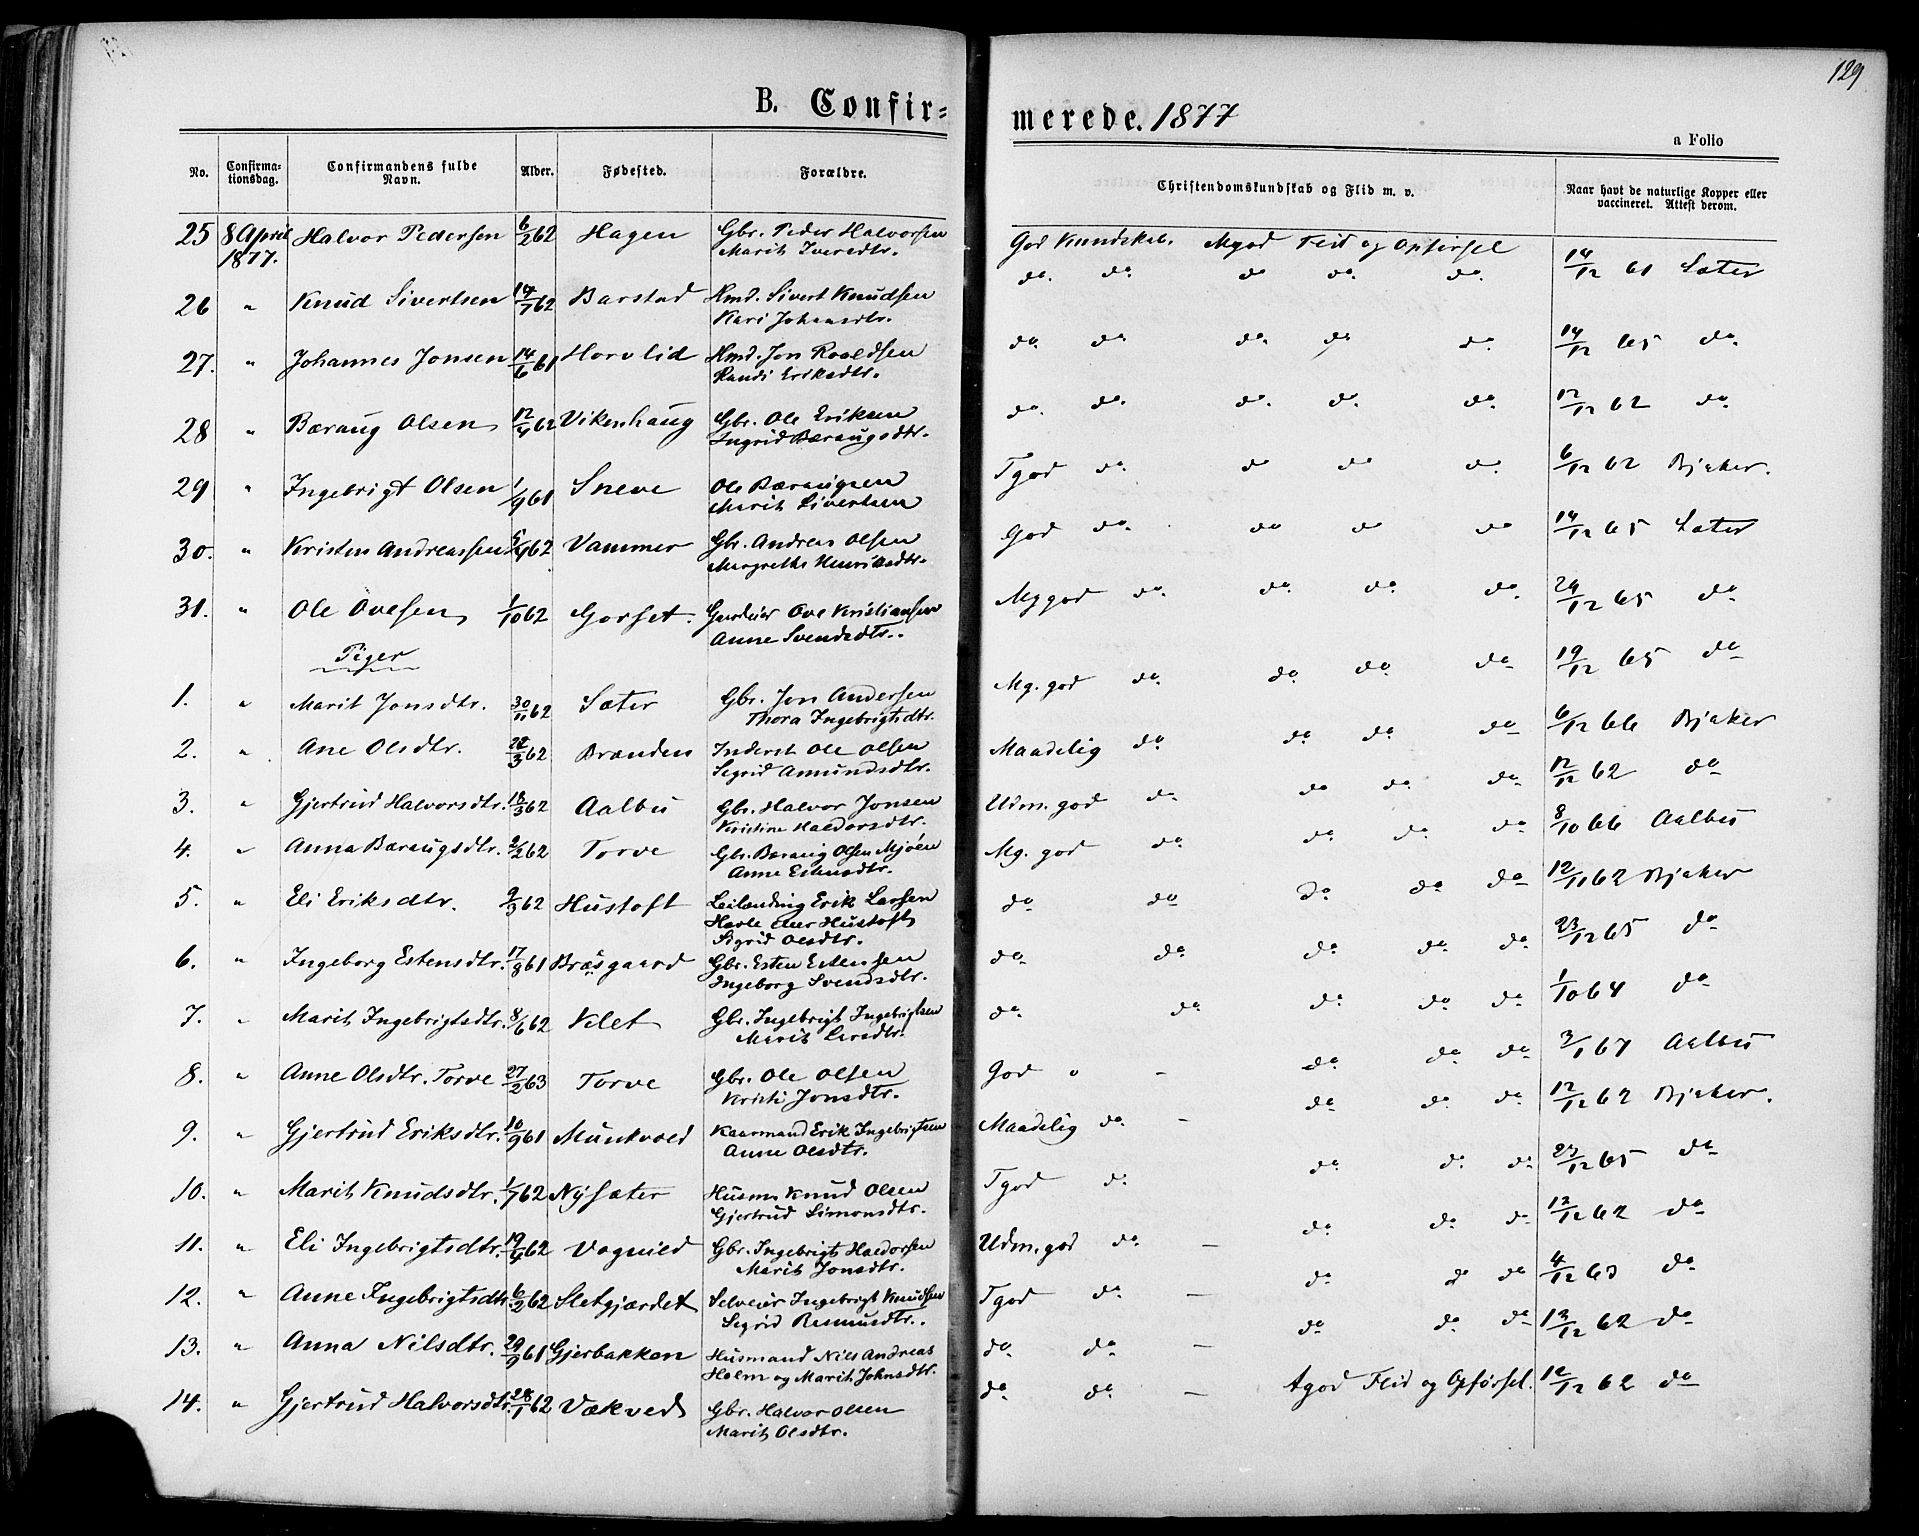 129
B. Confir=
merede. 1877
a Folio
No. Confirma-tionsdag. Confirmandens fulde Navn. Alder. Fødested. Forældre. Christendomskundskab og Flid m. v. Naar havt de naturlige Kopper eller vaccineret. Attest derom.
25 8 April 1877. Halvor Pedersen 6/2 62 Hagen Gbr. Peder Halvorsen
Marit Iversdtr.
God Kundskab. Mgod Flid og Opførsel 14/12 61 Sæter
26 " Knud Sivertsen 14/7 62 Barstad Hmd. Sivert Knudsen
Kari Johansdtr.
do. do. do do. do. 14/12 65 do.
27. " Johannes Jonsen 14/6 61 Horvlid Hmd. Jon Roaldsen
Randi Eriksdtr.
do. do. do. do do. 12/12 62 do.
28 " Bæraug Olsen 12/4 62 Vikenhaug Gbr. Ole Eriksen
Ingrid Bæraugsdtr.
do. do. do. do. do. 6/12 62 Bjaker.
29 " Ingebrigt Olsen 1/9 61 Sneve Ole Bæraugsen
Marit Sivertsen
Tgod do. do do do. 14/12 65 Sæter
30. " Kristen Andreassen 5/4 62 Vammer Gbr. Andreas Olsen
Margrethe Henriksdtr.
God do. do do do 24/12 65 do
31. " Ole Ovesen 1/10 62 Gorset. Ove Kristiansen
Anne Svendsdtr.
Mggod do. do. do. do. 19/12 65 do
Piger
1. " Marit Jonsdtr. 30/11 62 Sæter Gbr. Jon Andersen
Thora Ingebrigtsdtr.
Mg. god do. do. do. do 6/12 66 Bjaker
2. " Ane Olsdtr. 22/3 62 Brænden Inderst Ole Olsen
Sigrid Amundsdtr.
Maadelig do do. do. do 12/12 62 do
3. " Gjertrud Halvorsdtr. 18/3 62 Aalbu Gbr. Halvor Jonsen
Kristine Haldorsdtr.
Udm. god do do. do. do. 8/10 66 Aalbu
4. " Anna Bæraugsdtr. 2/2 62 Torve Gbr. Bæraug Olsen Mjøen
Anne Estensdtr.
Mg. god do do. do. do 12/11 62 Bjaker
5. " Eli Eriksdtr. 9/3 62 Hustoft Leilending Erik Larsen
Hustoft
Sigrid Olsdtr.
do do Do do do 23/12 65 do
6. " Ingeborg Estensdtr. 17/8 61 Bræsgaard Gbr. Esten Estensen
Ingeborg Svendsdtr.
do do do. do. do. 1/10 64 do
7. " Marit Ingebrigtsdtr. 8/6 62 Klet Gbr. Ingebrigt Ingebrigtsen
Marit Larsdtr.
do. do do. do do 3/1 67 Aalbu
8. " Anne Olsdtr. Torve 27/2 63 Torve Gbr. Ole Olsen
Kristi Jonsdtr.
God " - do. do do 12/12 62 Bjaker.
9. " Gjertrud Eriksdtr. 10/9 61 Munkvold Kaarmand Erik Ingebrigtsen
Anne Olsdtr.
Maadelig do. - do. do. do. 23/12 65 do
10. " Marit Knudsdtr. 1/7 62 Nysæter Husm. Knud Olsen
Gjertrud Simonsdtr.
Tgod do. do. do. do. 12/12 62 do
11. " Eli Ingebrigtsdtr. 19/4 62 Vognild Gbr. Ingebrigt Haldorsen
Marit Jonsdtr.
Udm. god do. - do. do. do. 4/12 63 do
12. " Anne Ingebrigtsdtr. 6/2 62 Sletgjærdet Selveier Ingebrigt Knudsen
Sigrid Rasmusdtr.
Tgod do. - do do do 13/12 62 do
13. " Anna Nilsdtr. 29/9 61 Gjerbakken Husmand Nils Andreas
Holm og Marit Johnsdtr.
do. do. - do do. do 12/12 62 do
14. " Gjertrud Halvorsdtr. 28/1 62 Vækved Gbr. Halvor Olsen
Marit Olsdtr.
do. do. - Agod Flid og Opførsel.